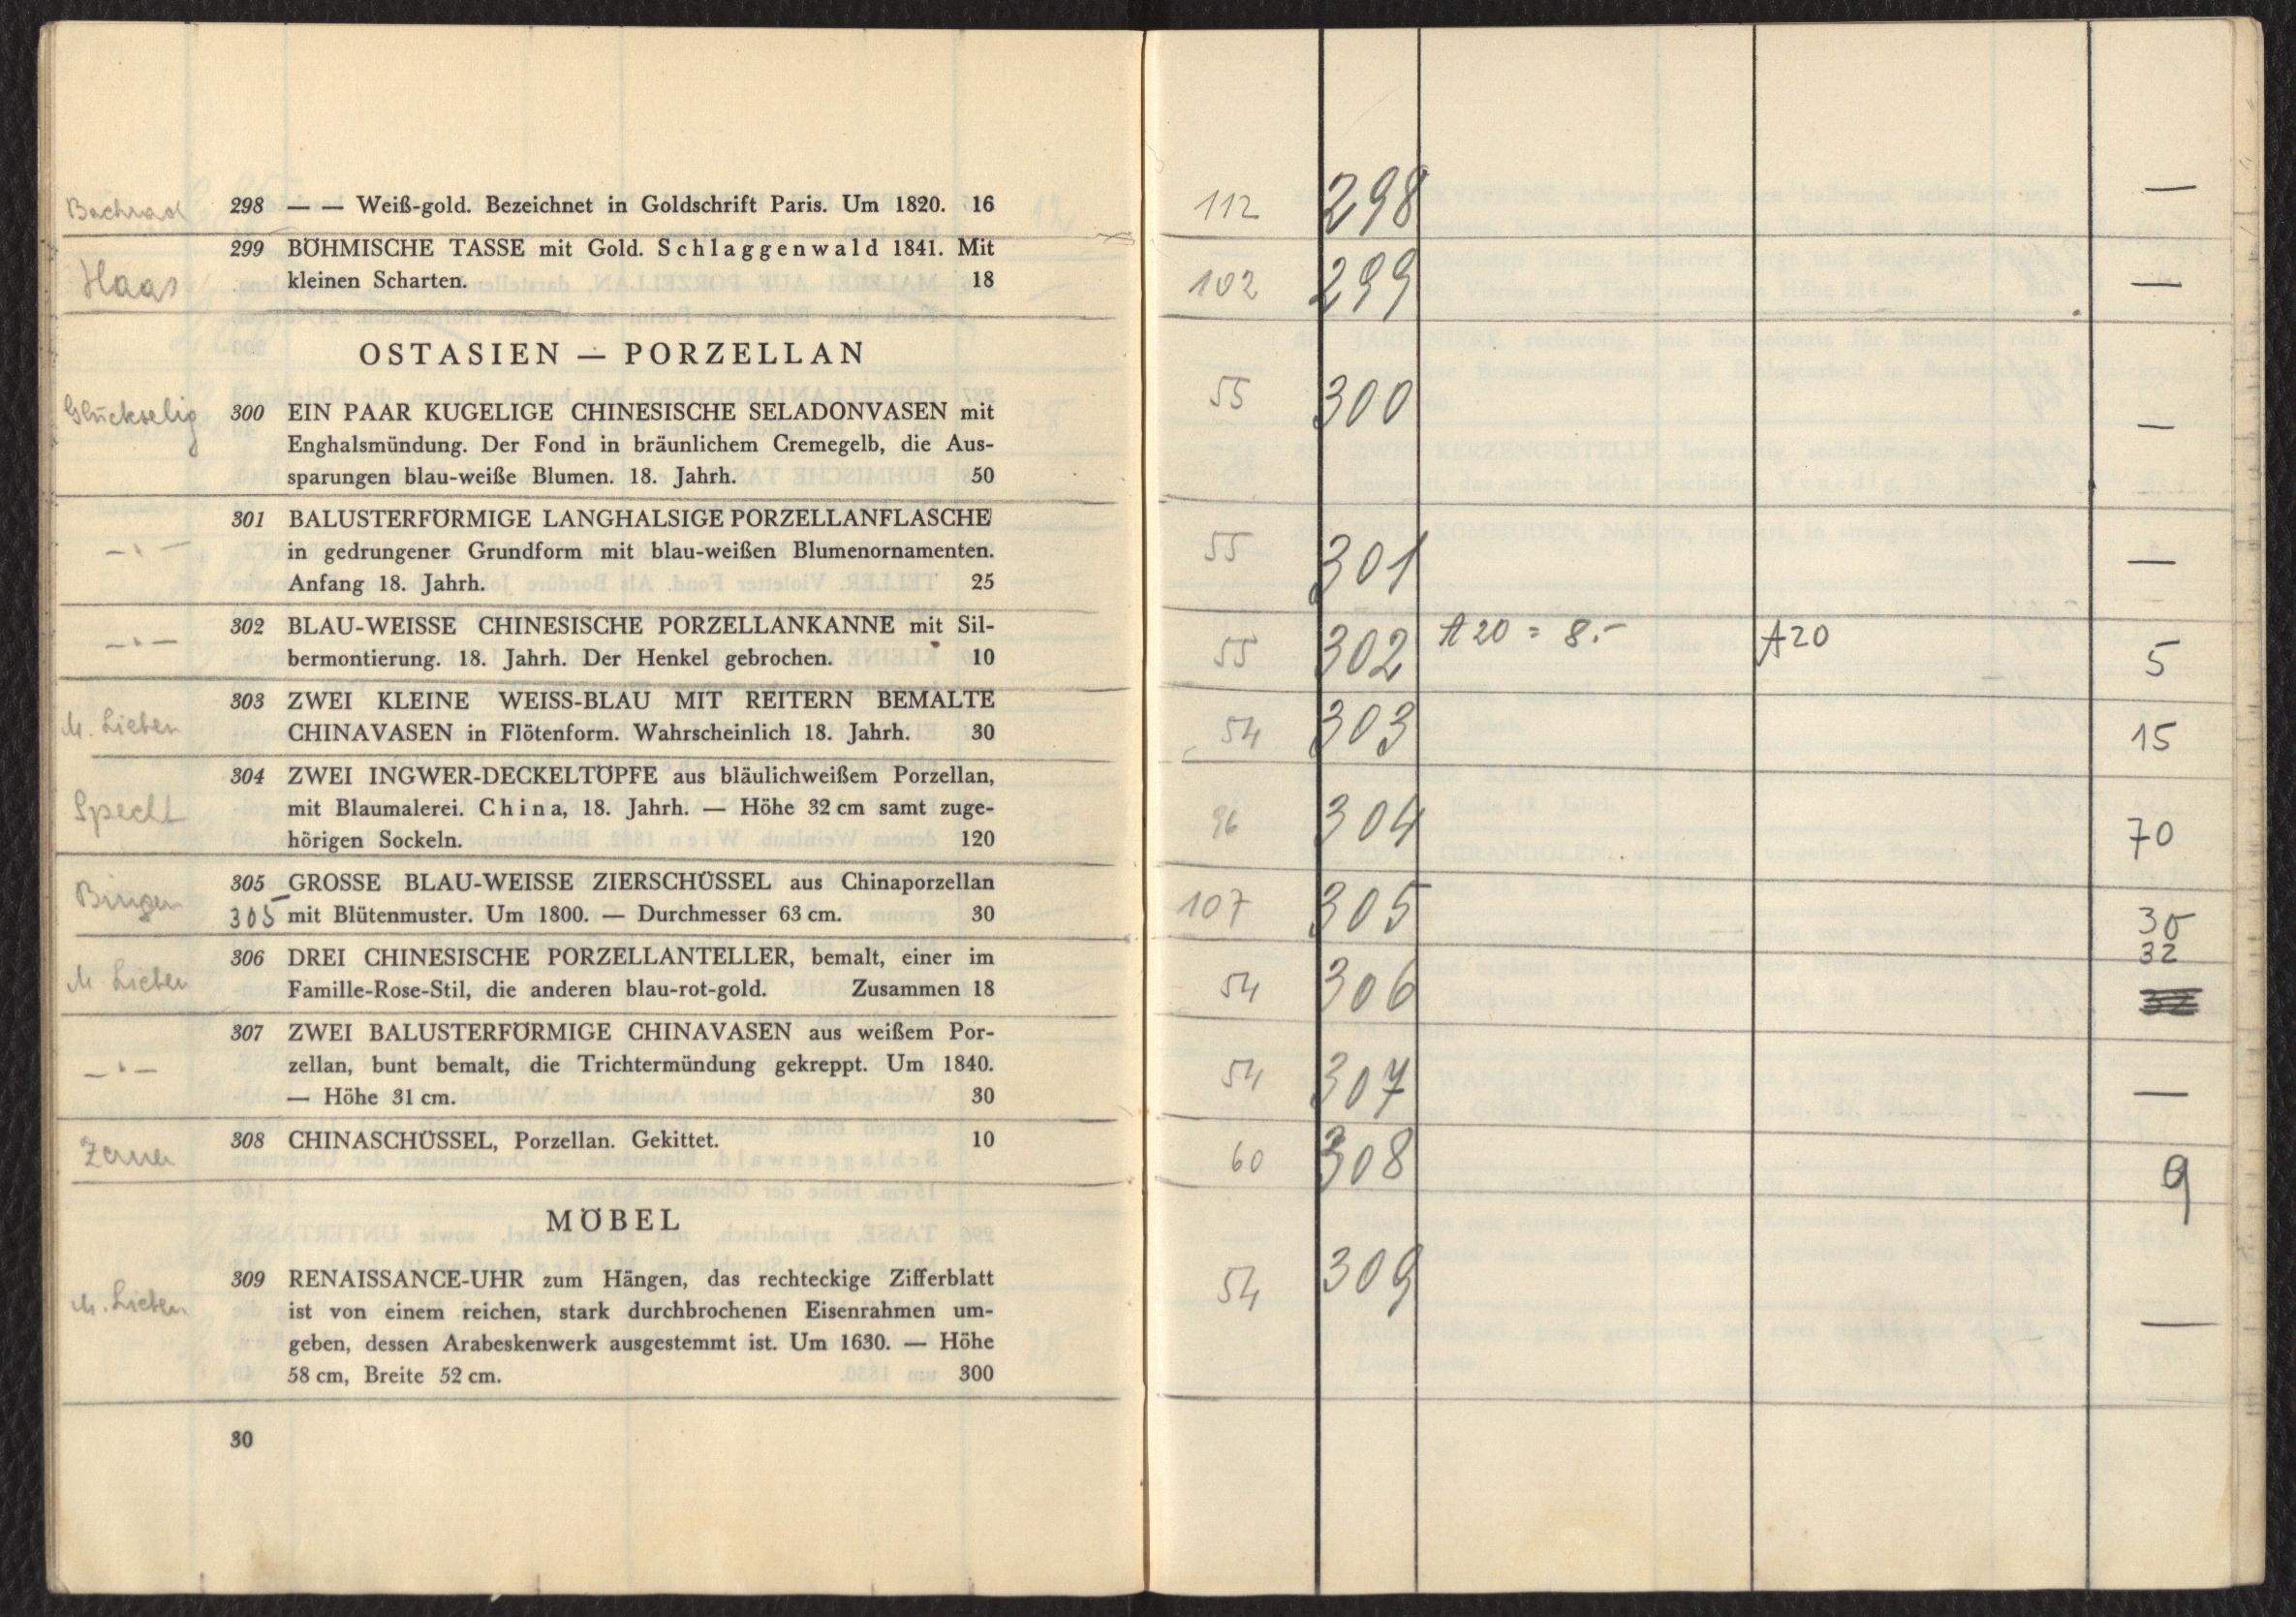 Bachrad 298 — — Weiß-gold. Bezeichnet in Goldschrift Paris. Um 1820. 16
299 BÖHMISCHE TASSE mit Gold. Schlaggenwald 1841. Mit
Haas kleinen Scharten. 18
OSTASIEN — PORZELLAN
Glückselig 300 EIN PAAR KUGELIGE CHINESISCHE SELADONVASEN mit
Enghalsmündung. Der Fond in bräunlichem Cremegelb, die Aus-
sparungen blau-weiße Blumen. 18. Jahrh. 50
301 BALUSTERFÖRMIGE LANGHALSIGE PORZELLANFLASCHE
—"— in gedrungener Grundform mit blau-weißen Blumenornamenten.
Anfang 18. Jahrh. 25
302 BLAU-WEISSE CHINESISCHE PORZELLANKANNE mit Sil-
—"— bermontierung. 18. Jahrh. Der Henkel gebrochen. 10
303 ZWEI KLEINE WEISS-BLAU MIT REITERN BEMALTE
M. Lieben CHINAVASEN in Flötenform. Wahrscheinlich 18. Jahrh. 30
304 ZWEI INGWER-DECKELTÖPFE aus bläulichweißem Porzellan,
Specht mit Blaumalerei. China, 18. Jahrh. — Höhe 32 cm samt zuge-
hörigen Sockeln. 120
Bingen 305 GROSSE BLAU-WEISSE ZIERSCHÜSSEL aus Chinaporzellan
305 mit Blütenmuster. Um 1800. — Durchmesser 63 cm. 30
306 DREI CHINESISCHE PORZELLANTELLER, bemalt, einer im
M Lieben Famille-Rose-Stil, die anderen blau-rot-gold. Zusammen 18
307 ZWEI BALUSTERFÖRMIGE CHINAVASEN aus weißem Por-
—"— zellan, bunt bemalt, die Trichtermündung gekreppt. Um 1840.
— Höhe 31 cm. 30
Zerner 308 CHINASCHÜSSEL, Porzellan. Gekittet. 10
MÖBEL
309 RENAISSANCE-UHR zum Hängen, das rechteckige Zifferblatt
M. Lieben ist von einem reichen, stark durchbrochenen Eisenrahmen um-
geben, dessen Arabeskenwerk ausgestemmt ist. Um 1630. — Höhe
58 cm, Breite 52 cm. 300
30
112 298 —
102 299 —
55 300 —
55 301 —
55 302 A20 = 8.- A20 5
54 303 15
96 304 70
107 305 30
54 306 32
54 307 —
60 308 9
54 309 —